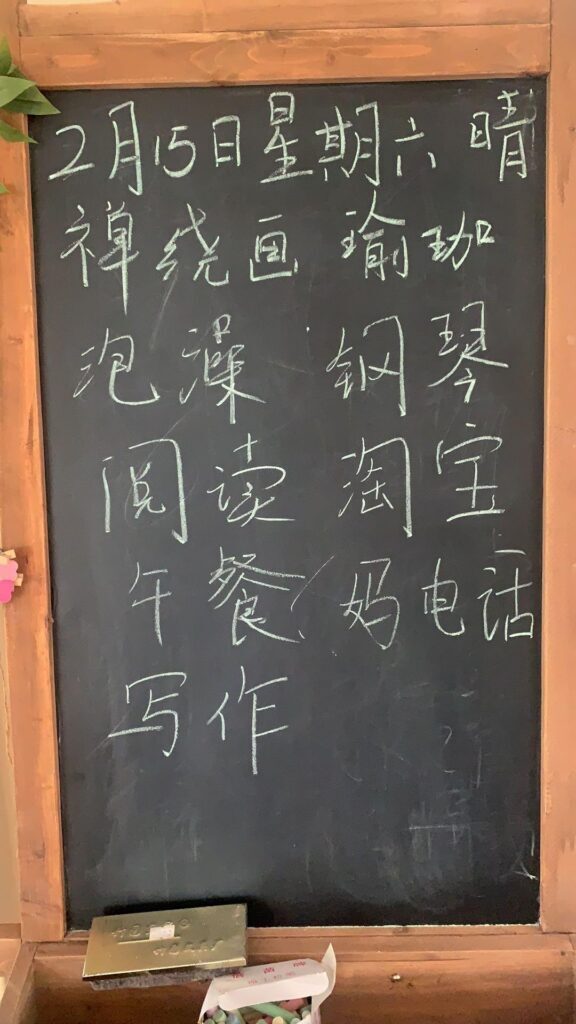 2月15日星期六 晴
禅绕画 瑜珈
泡澡 钢琴
阅读 淘宝
午餐 妈电话
写作